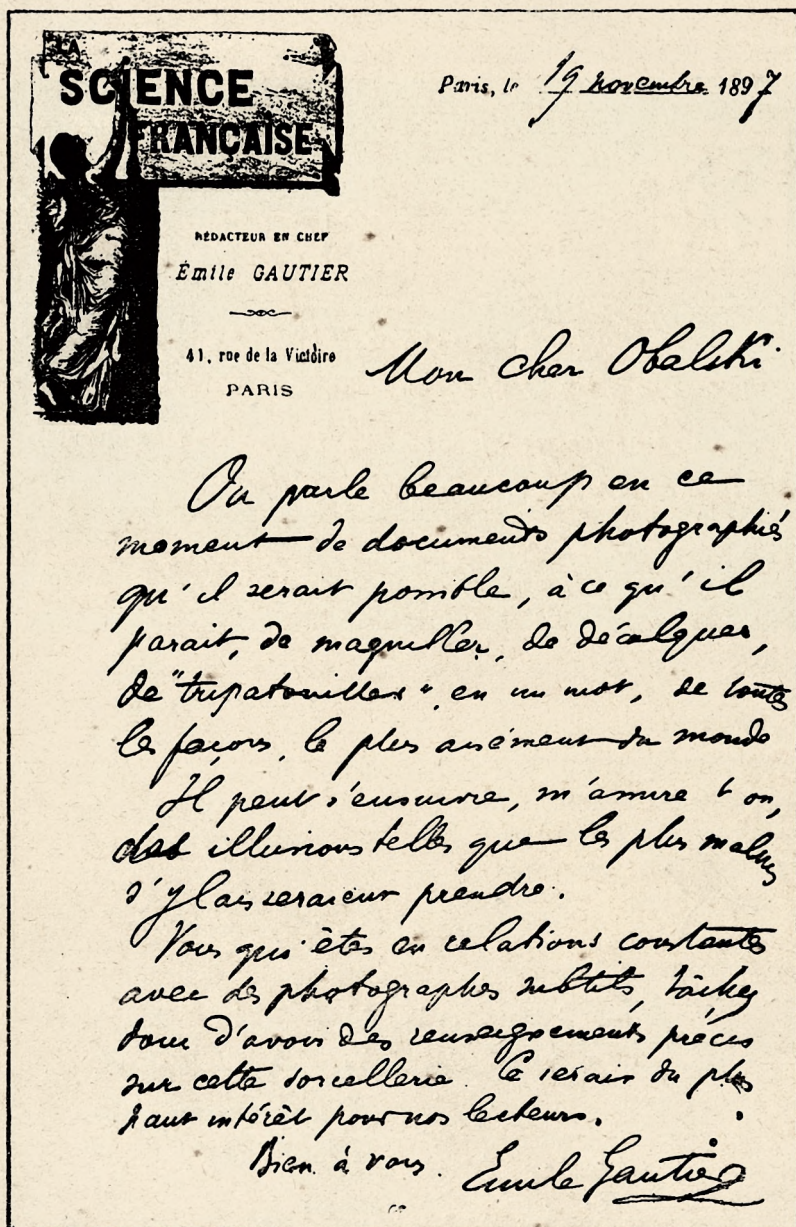 LA
SCIENCE
FRANÇAISE
Paris, le 19 novembre 1897
RÉDACTEUR EN CHEF
Émile GAUTIER
41, rue de la Victoire
PARIS
Mon cher Obalski
On parle beaucoup en ce
moment de documents photographiés
qu'il serait possible, à ce qu'il
parait, de maquiller, de décalquer,
de "tripatouiller", en un mot, de toutes
les façons, le plus aisément du monde
Il peut s'ensuivre, m'assure t on,
des illusions telles que les plus malins
s'y laisseraient prendre.
Vous qui êtes en relations constantes
avec des photographes subtils, tâchez
donc d'avoir des renseignements précis
sur cette sorcellerie. Ce serait du plus
haut intérêt pour nos lecteurs.
Bien à vous.
Emile Gautier